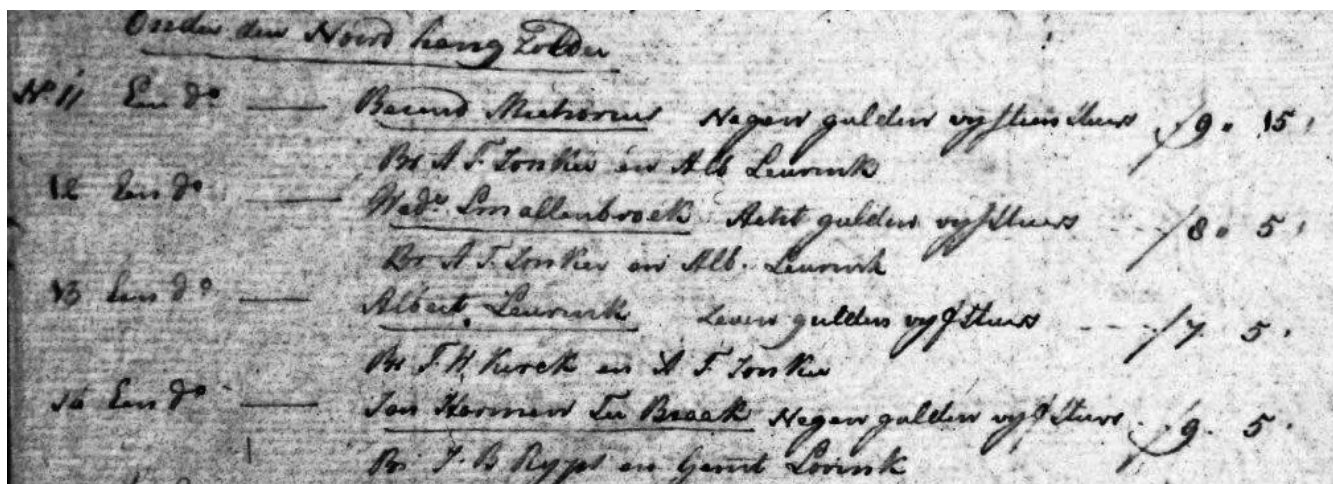 Onder den Noord hang Zolder
N° 11 Een do — Berend Meehorius Negen gulden vyftien stuvs ƒ 9 „ 15 „
Br A F Jonker en Alb Leurink
12 Een do — Wedw Smallenbroek Acht gulden vyf stuvs - - - ƒ 8 „ 5 „
Br A F Jonker en Alb. Leurink
13 Een do — Albert Leurink Zeven gulden vyf stuvs - - - ƒ 7 „ 5 „
Br F. H. Kerck en A F Jonker
14 Een do — Jan Harmen Ter Braak Negen gulden vyf stuvs - ƒ 9 „ 5 „
Br J B Ryps en Gerrit Lovink